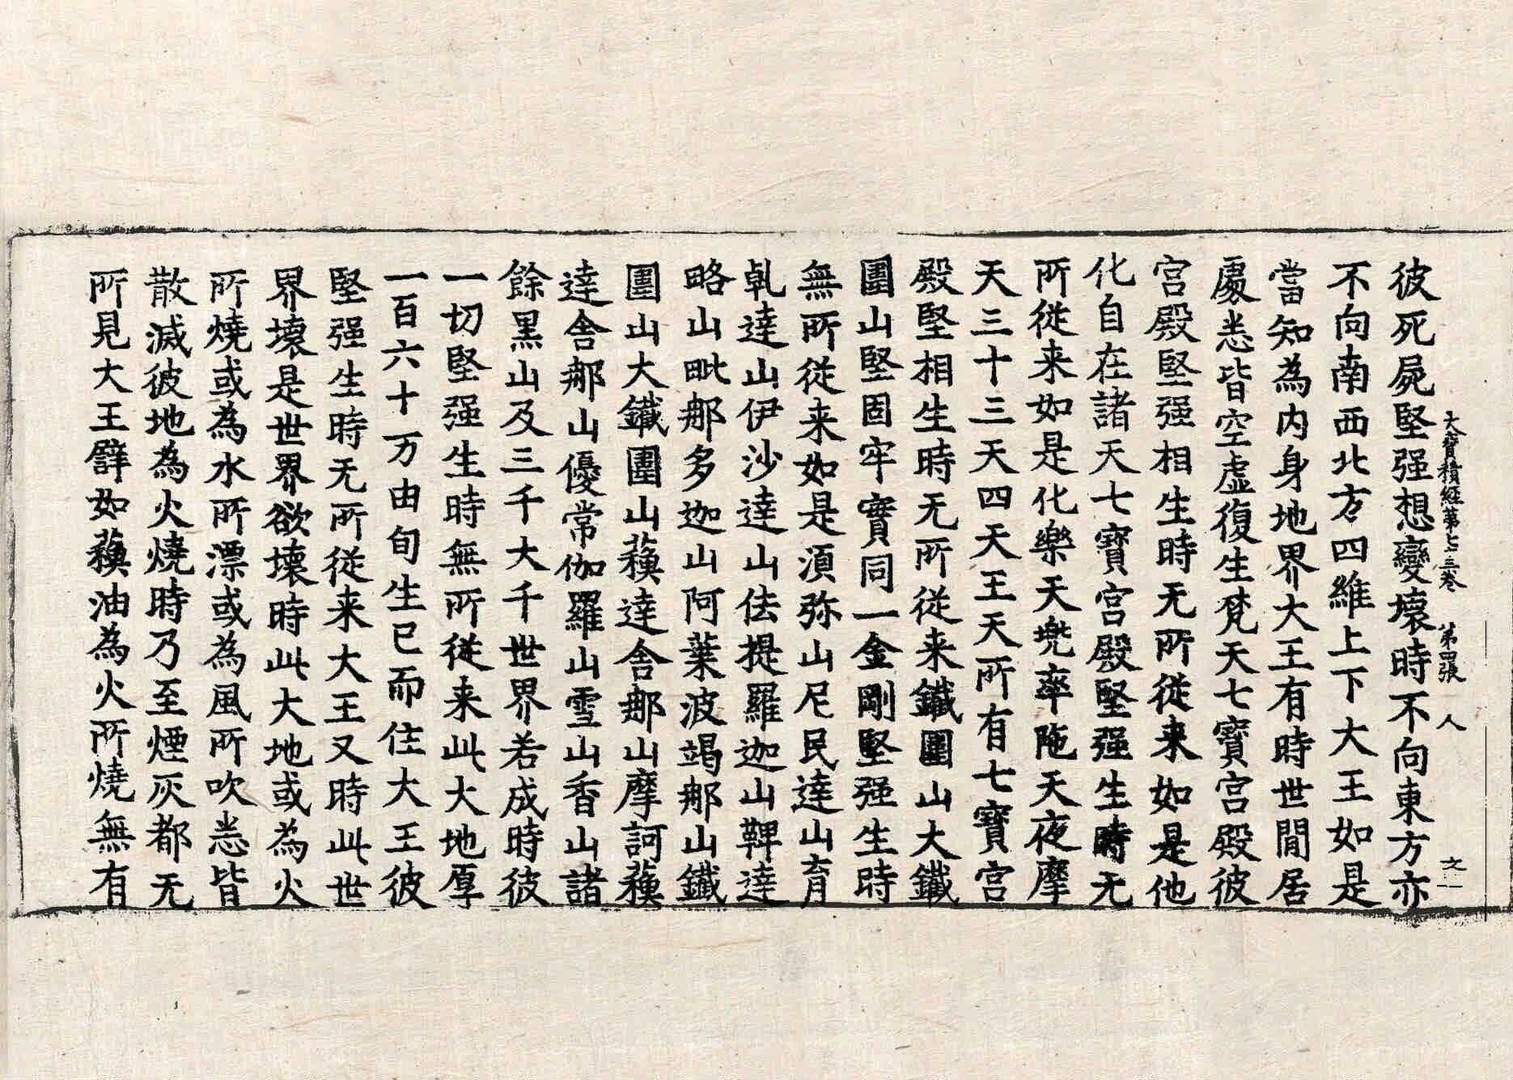 大寶積經第七十三卷 第四張 人
彼死屍堅强想變壞時不向東方亦
不向南西北方四維上下大王如是
當知為内身地界大王有時世間居
處悉皆空虛復生梵天七寶宮殿彼
宮殿堅强相生時无所從来如是他
化自在諸天七寶宮殿堅强生時无
所從来如是化樂天兜率陁天夜摩
天三十三天四天王天所有七寶宮
殿堅相生時无所從来鐵圍山大鐵
圍山堅固牢實同一金剛堅强生時
無所從来如是湏弥山尼民達山育
乹達山伊沙達山佉提羅迦山鞞達
略山毗那多迦山阿葉波竭那山鐵
圍山大鐵圍山蘓達舎那山摩訶蘓
達舎那山優常伽羅山雪山香山諸
餘黒山及三千大千世界若成時彼
一切堅强生時無所從来此大地厚
一百六十万由旬生已而住大王彼
堅强生時无所從来大王又時此世
界壞是世界欲壞時此大地或為火
所燒或為水所漂或為風所吹悉皆
散滅彼地為火燒時乃至煙灰都无
所見大王譬如蘓油為火所燒無有